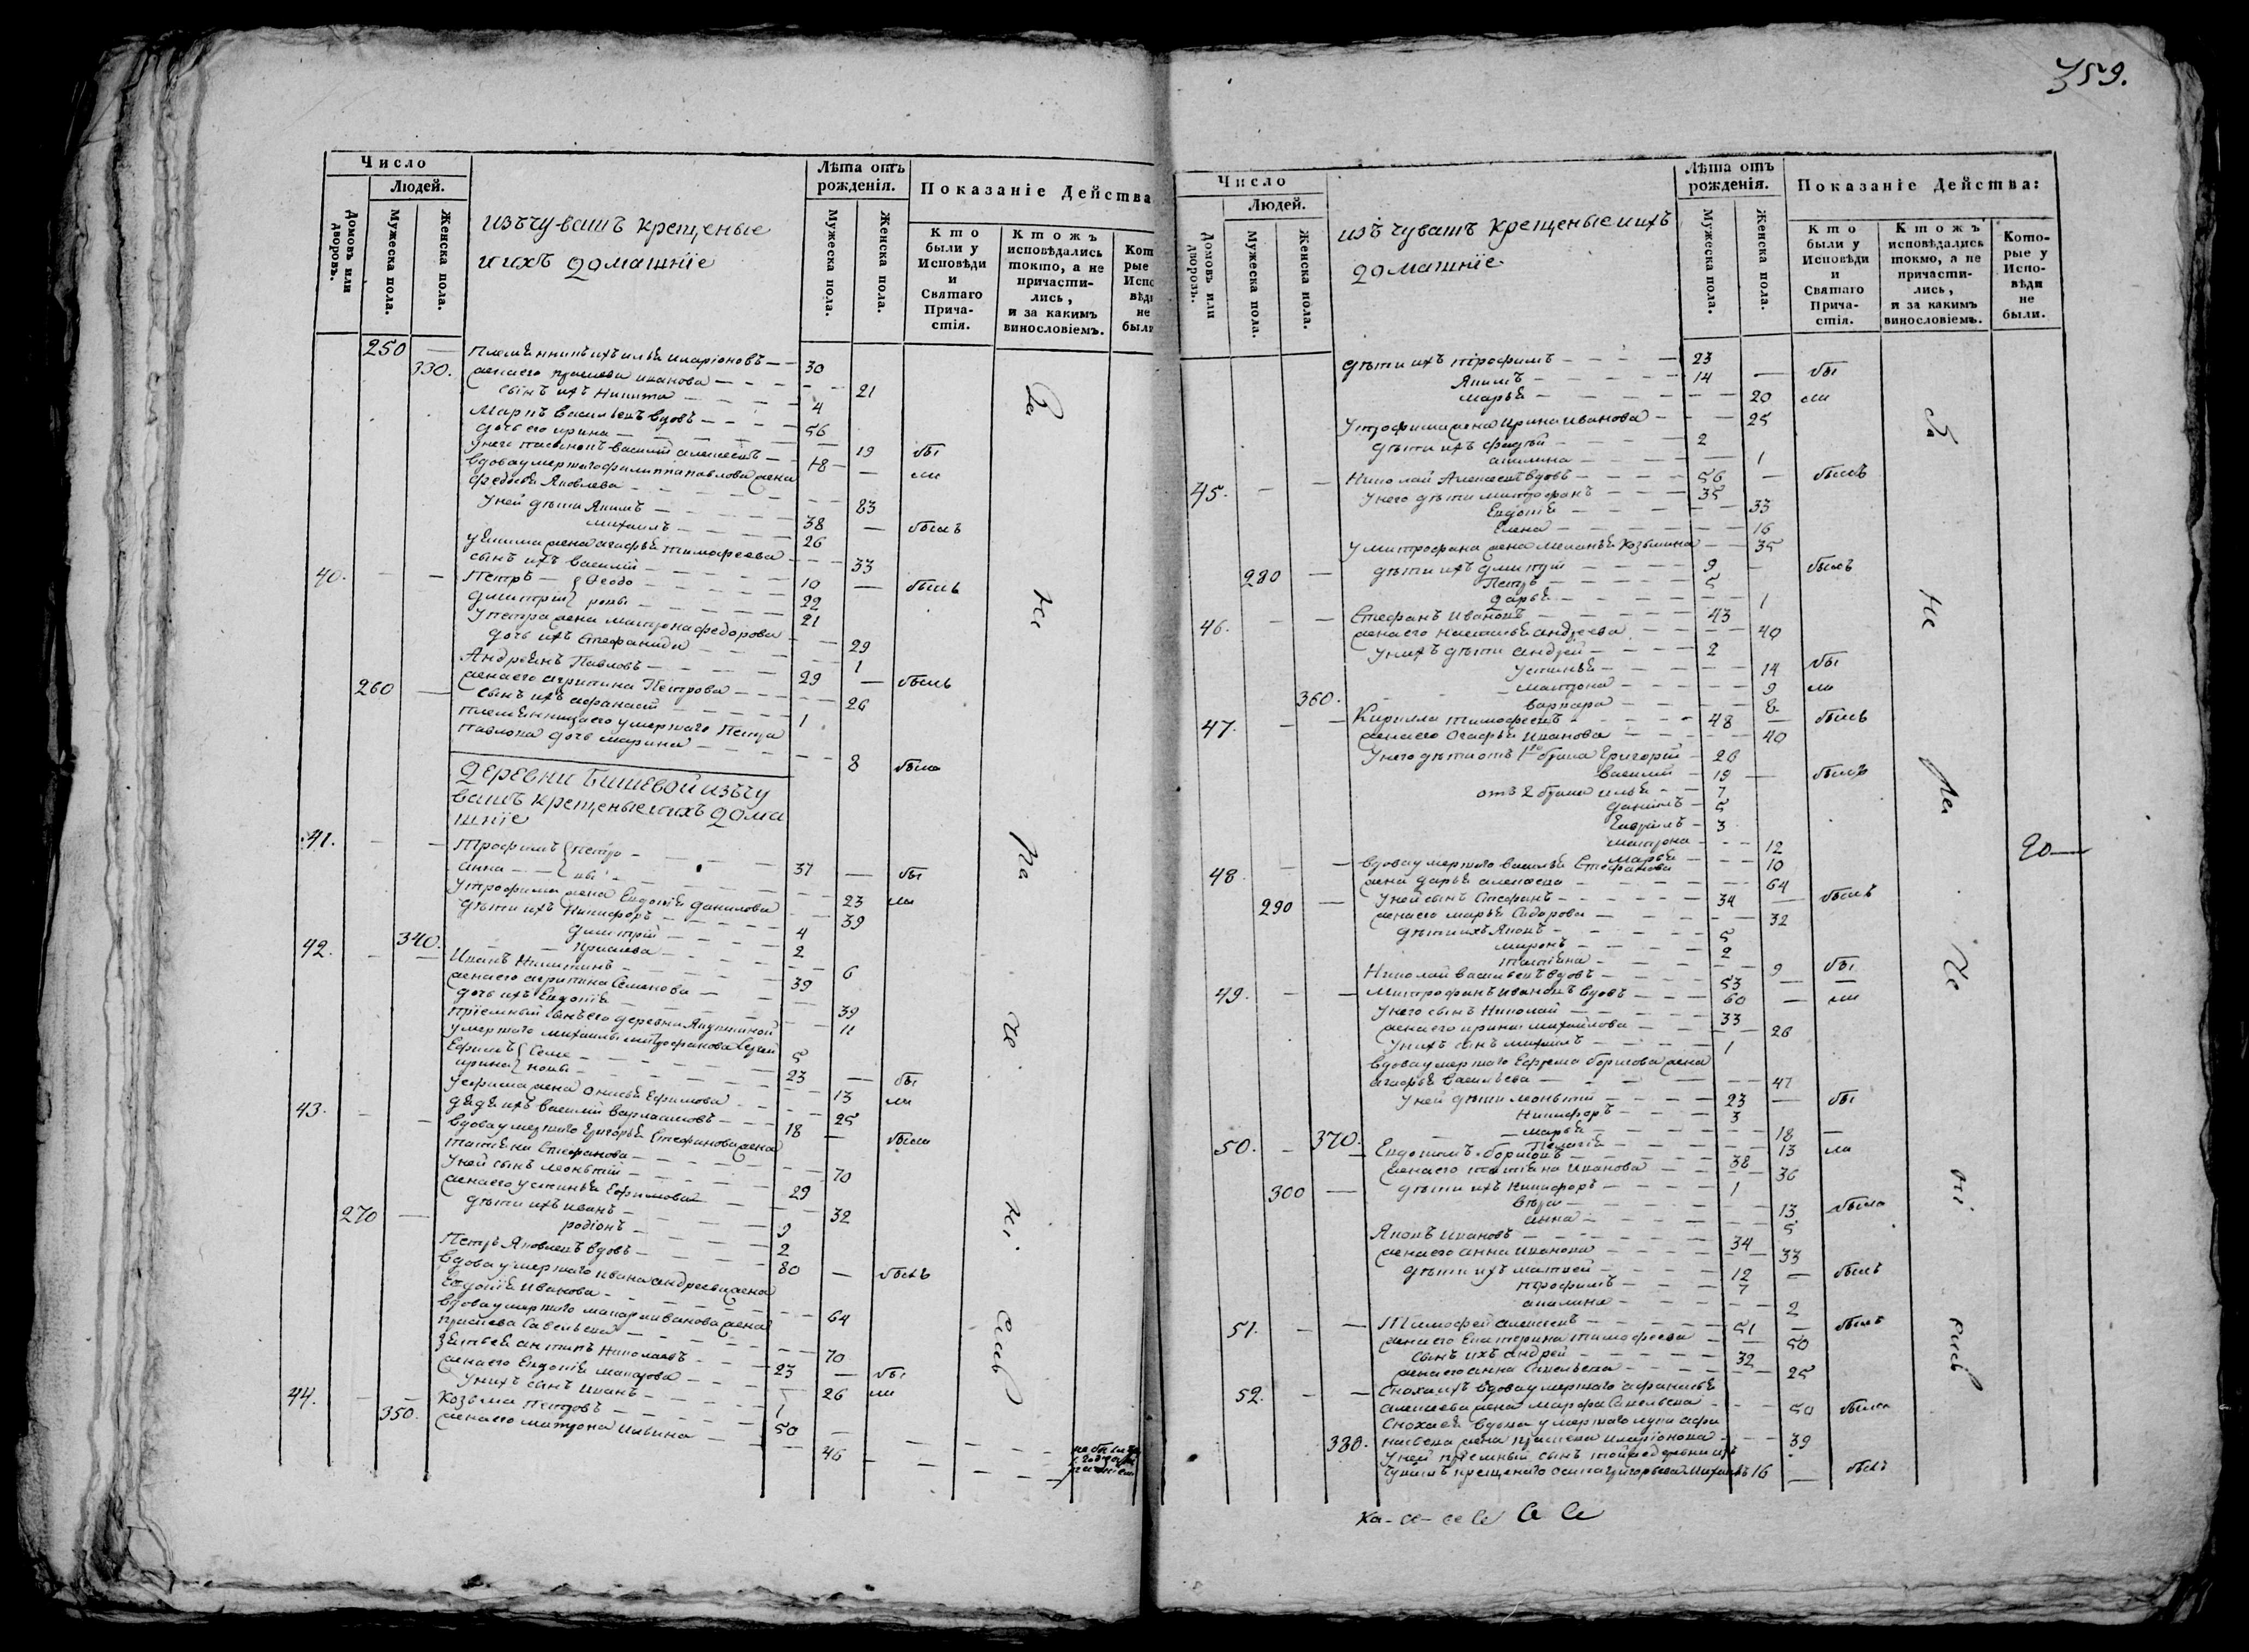 359.
Число
Людей.
Домовъ или дворовъ.
Мужеска пола.
Женска пола.
изъ чувашъ крещеные
и ихъ домашніе
Лѣта отъ рожденія.
Мужеска пола.
Женска пола.
Показаніе Действа
Кто были у Исповѣди и Святаго Причастія.
Ктожъ исповѣдались токмо, а не причастились, и за какимъ винословіемъ.
Кот
рые
Испо
вѣди
не
были
250 — Племянникъ ихъ илья иларіоновъ — 30
330. жена его прасковья иванова — 21
сынъ ихъ Никита — 4
Марпъ Васильевъ вдовъ — 56
дочь его ирина — 19 бы
У него пасынокъ василій алексеевъ — 18 — ли
вдова умершаго филиппа павлова жена
федосья Яковлева — 83
У ней дѣти Якимъ — 38 — былъ
михаилъ — 26
у якима жена агафья тимофеева — 33
сынъ ихъ василій — 10 — былъ
40. Петръ { Феодо — 22
дмитрій } ровы — 21
У петра жена матрона федорова — 29
дочь ихъ Стефанида — 1
Андреянъ Павловъ — 29 — былъ
260 — жена его агрипина Петрова — 26
сынъ ихъ афанасій — 1
племянница его умершаго Петра
павлова дочь марина — 8 была
деревни Бишевой изъ чу
вашъ крещеные и ихъ дома
шніе
41. Трофимъ { петро — 37 — бы
анна } вы — 23 ли
У трофима жена Евдокія данилова — 39
дѣти ихъ Никифоръ — 4
дмитрій — 2
340. Прасковья — 6
42. Иванъ Никитинъ — 39
жена его агрипина Семенова — 39
дочь ихъ Евдокія — 11
пріемный сынъ его деревни Якушкиной
умершаго михаилы митрофанова Сергей 5
Ефимъ { Семе — 23 — бы
ирина } новы — 13 ли
У ефима жена Онисья Ефимова — 25
43. дядя ихъ василій варлаамовъ — 18 — былъ
вдова умершаго григорья Стефанова жена
татьяна Стефанова — 70
У ней сынъ леонтій — 29
жена его устинья Ефимова — 32
дѣти ихъ иванъ — 9
270 — родіонъ — 2
Петръ Яковлевъ вдовъ — 80 — былъ
вдова умершаго ивана андреева жена
Евдокія иванова — 64
вдова умершаго макара иванова жена
прасковья Савельева — 70
зять ея антипъ Николаевъ — 23 — бы
жена его Евдокія макарова — 26 ли
У нихъ сынъ иванъ — 1
44. Козьма Петровъ — 50
350. жена его матрона ильина — 46
Число
Людей.
Домовъ или дворовъ.
Мужеска пола.
Женска пола.
изъ чувашъ крещеные и ихъ
домашніе
Лѣта отъ рожденія.
Мужеска пола.
Женска пола.
Показаніе Действа:
Кто были у Исповѣди и Святаго Причастія.
Ктожъ исповѣдались токмо, а не причастились, и за какимъ винословіемъ.
Которые у Исповѣди не были.
дѣти ихъ трофимъ — 23 бы
Якимъ — 14
марья — 20 ли
У трофима жена Ирина иванова — 25
дѣти ихъ фадѣй — 2
акилина — 1
45. Николай Алексеевъ вдовъ — 56 — былъ
У него дѣти митрофанъ — 35
Евдокія — 33
Елена — 16
У митрофана жена Меланья Козьмина — 35
280 — дѣти ихъ дмитрій — 9 былъ
Петръ — 5
дарья — 1
46. Стефанъ Ивановъ — 43
жена его наталья андреева — 40
У нихъ дѣти андрей — 2
Устинья — 14 бы
матрона — 9 ли
360. варвара — 8
47. Кирилла тимофеевъ — 48 — былъ
жена его Агафья иванова — 40
У него дѣти отъ 1го брака Григорій — 26
василій — 19 — былъ
отъ 2 брака илья — 7
данилъ — 5
Гаврилъ — 3
матрона — 12
марья — 10
20 —
48. вдова умершаго василья Стефанова
жена дарья алексеева — 64
290 — У ней сынъ Стефанъ — 34 — былъ
жена его марья Сидорова — 32
дѣти ихъ Яковъ — 5
миронъ — 2
татьяна — 9 бы
Николай васильевъ вдовъ — 53 —
49. Митрофанъ ивановъ вдовъ — 60 — ли
У него сынъ Николай — 33
жена его ирина михайлова — 26
У нихъ сынъ михаилъ — 1
вдова умершаго Ефрема борисова жена
агафья васильева — 47
У ней дѣти леонтій — 23 — бы
Никифоръ — 3
марья — 18
370. Пелагія — 13 ли
50. Евдокимъ борисовъ — 38
жена его татьяна иванова — 36
300 — дѣти ихъ Никифоръ — 1
вѣра — 13 была
анна — 5
Яковъ Ивановъ — 34
жена его анна иванова — 33
дѣти ихъ матвей — 12 — былъ
трофимъ — 7
акилина — 2
51. Тимофей алексеевъ — 51 — былъ
жена его Екатерина тимофеева — 50
сынъ ихъ андрей — 32
жена его анна Савельева — 25
52. Сноха ихъ вдова умершаго афанасья
алексеева жена марфа Савельева — 50 была
Сноха ея вдова умершаго луки афа
380. насьева жена прасковья иларіонова — 39
У ней пріемный сынъ той же деревни изъ
чувашъ крещенаго осипа григорьева михаилъ 16 — былъ